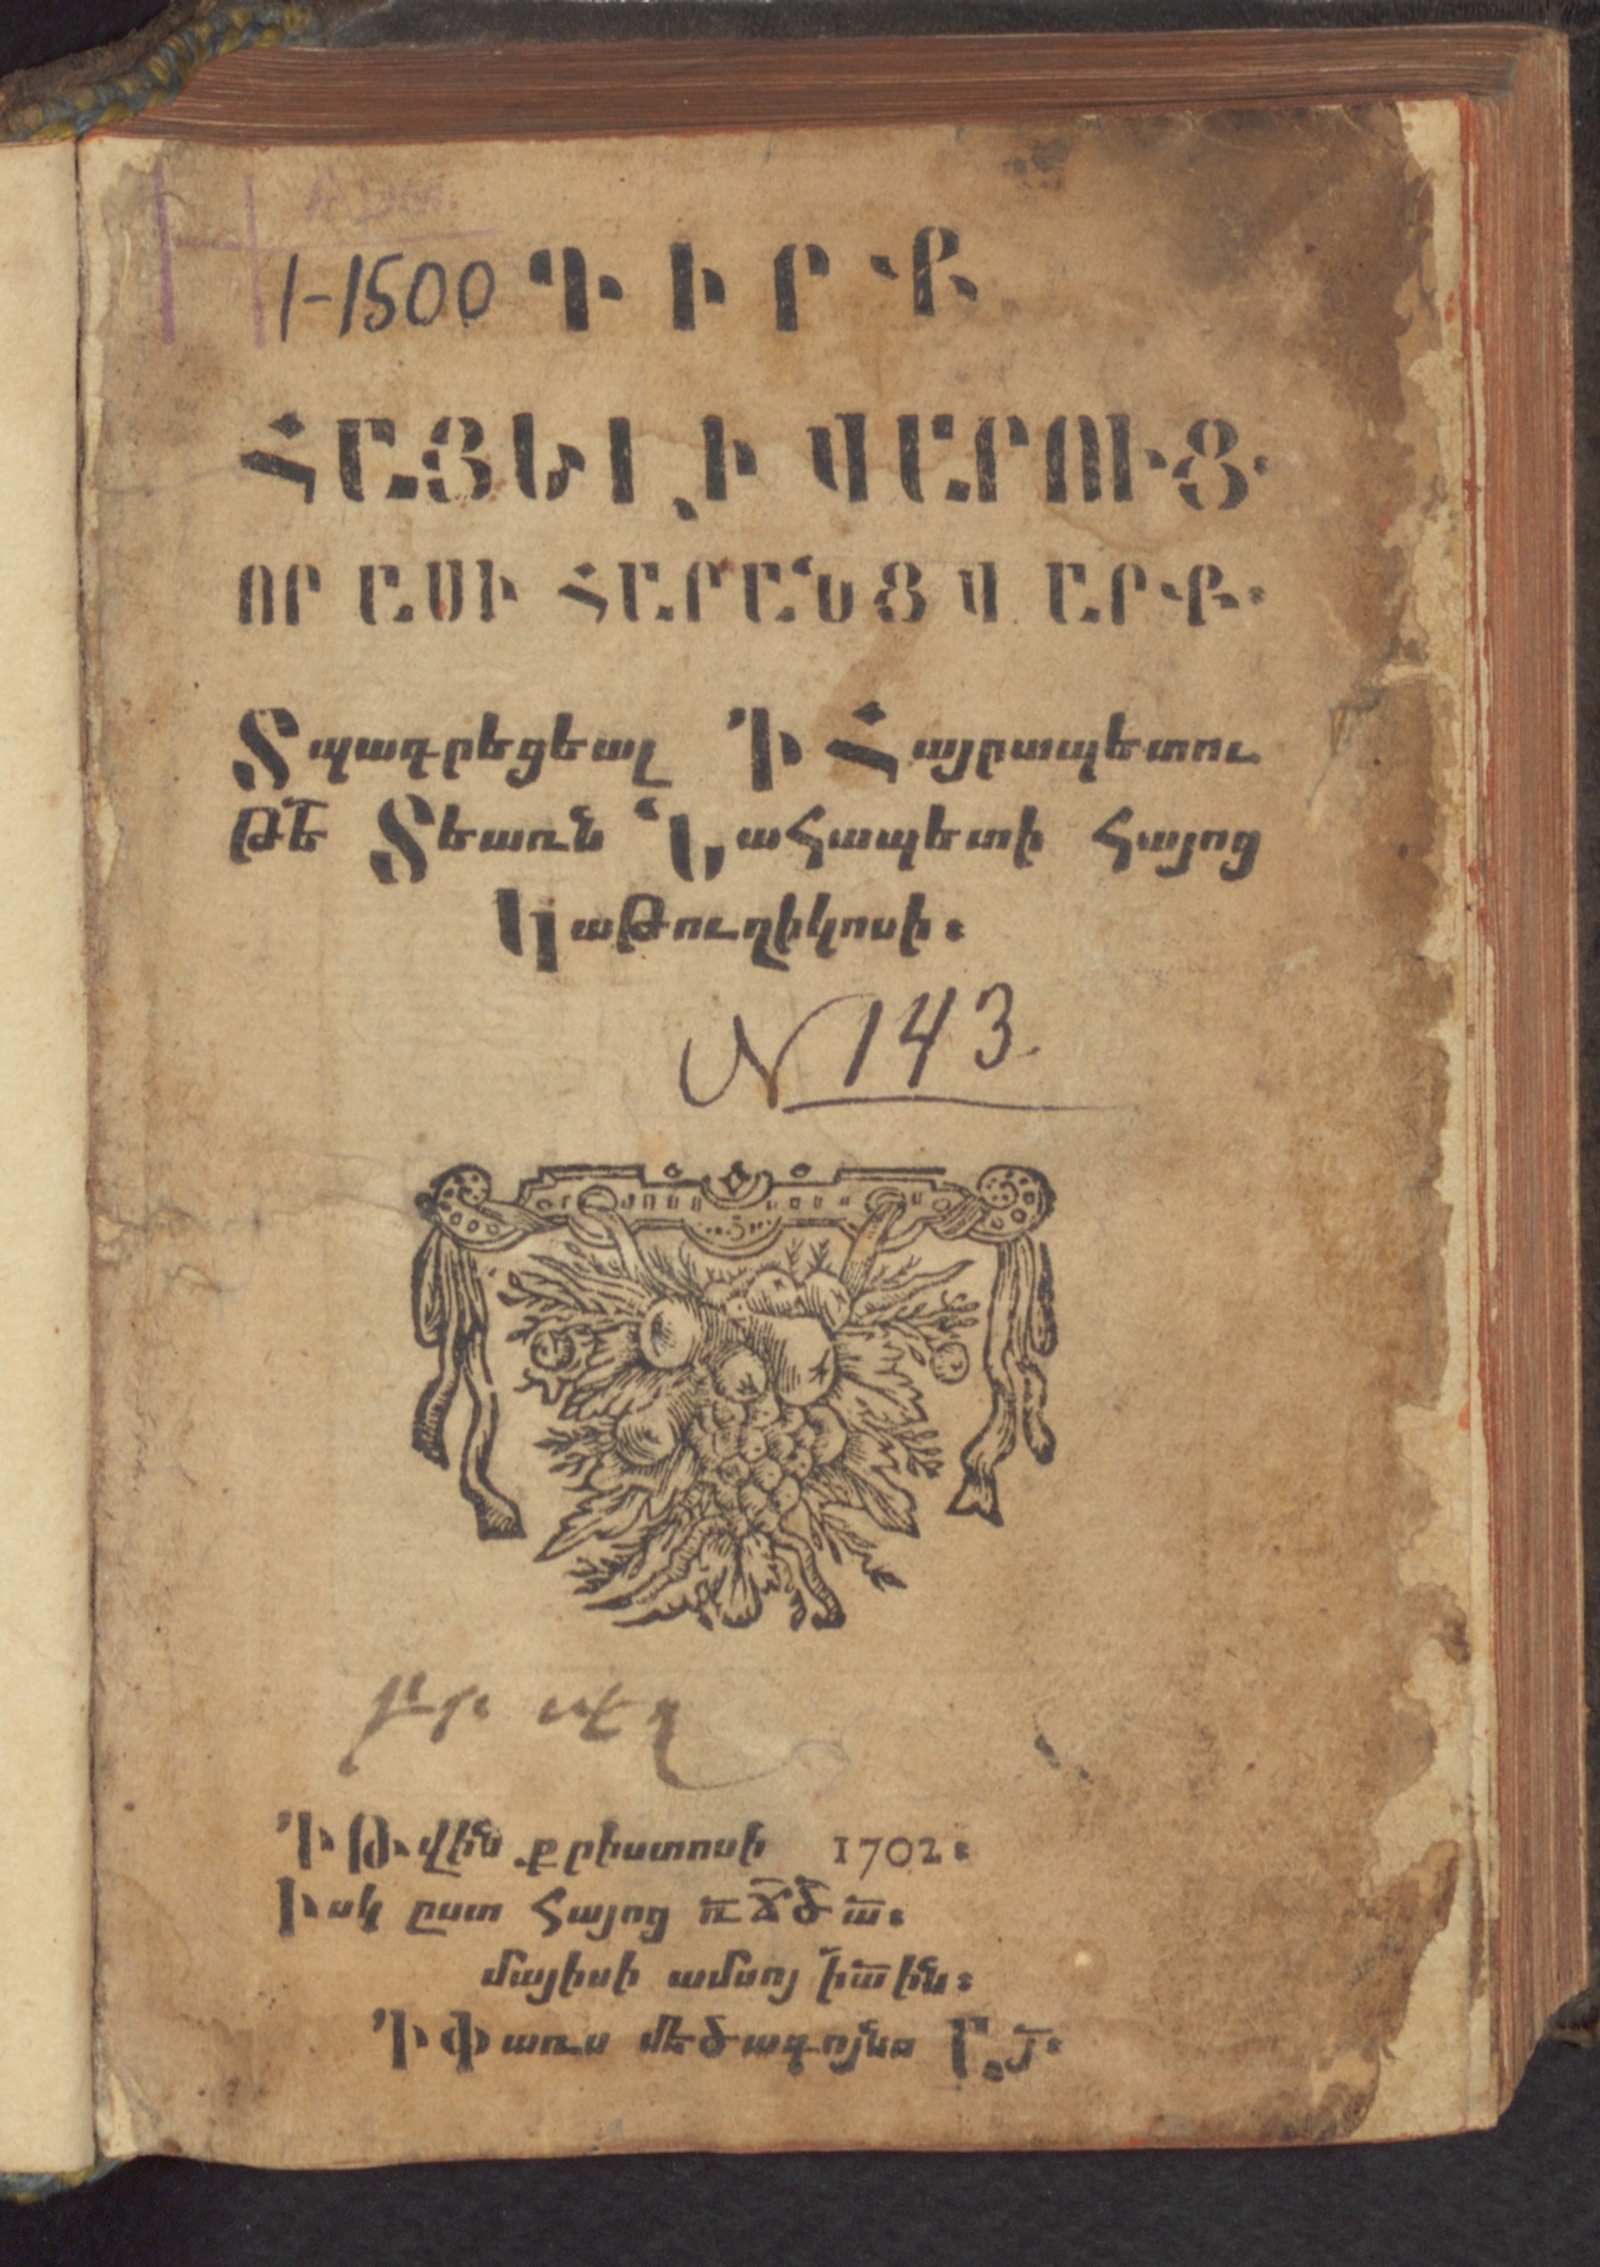 1-1500 ԳԻՐՔ
ՀԱՅԵԼԻ ՎԱՐՈՒՑ.
ՈՐ ԱՍԻ ՀԱՐԱՆՑ ՎԱՐՔ։
Տպագրեցեալ Ի Հայրապետու
թե՟ Տեառն Նահապետի Հայոց
Կաթուղիկոսի։
N 143
Ի Թվին քրիստոսի 1702։
Իսկ ըստ Հայոց ռճծա։
մայիսի ամսոյ իային։